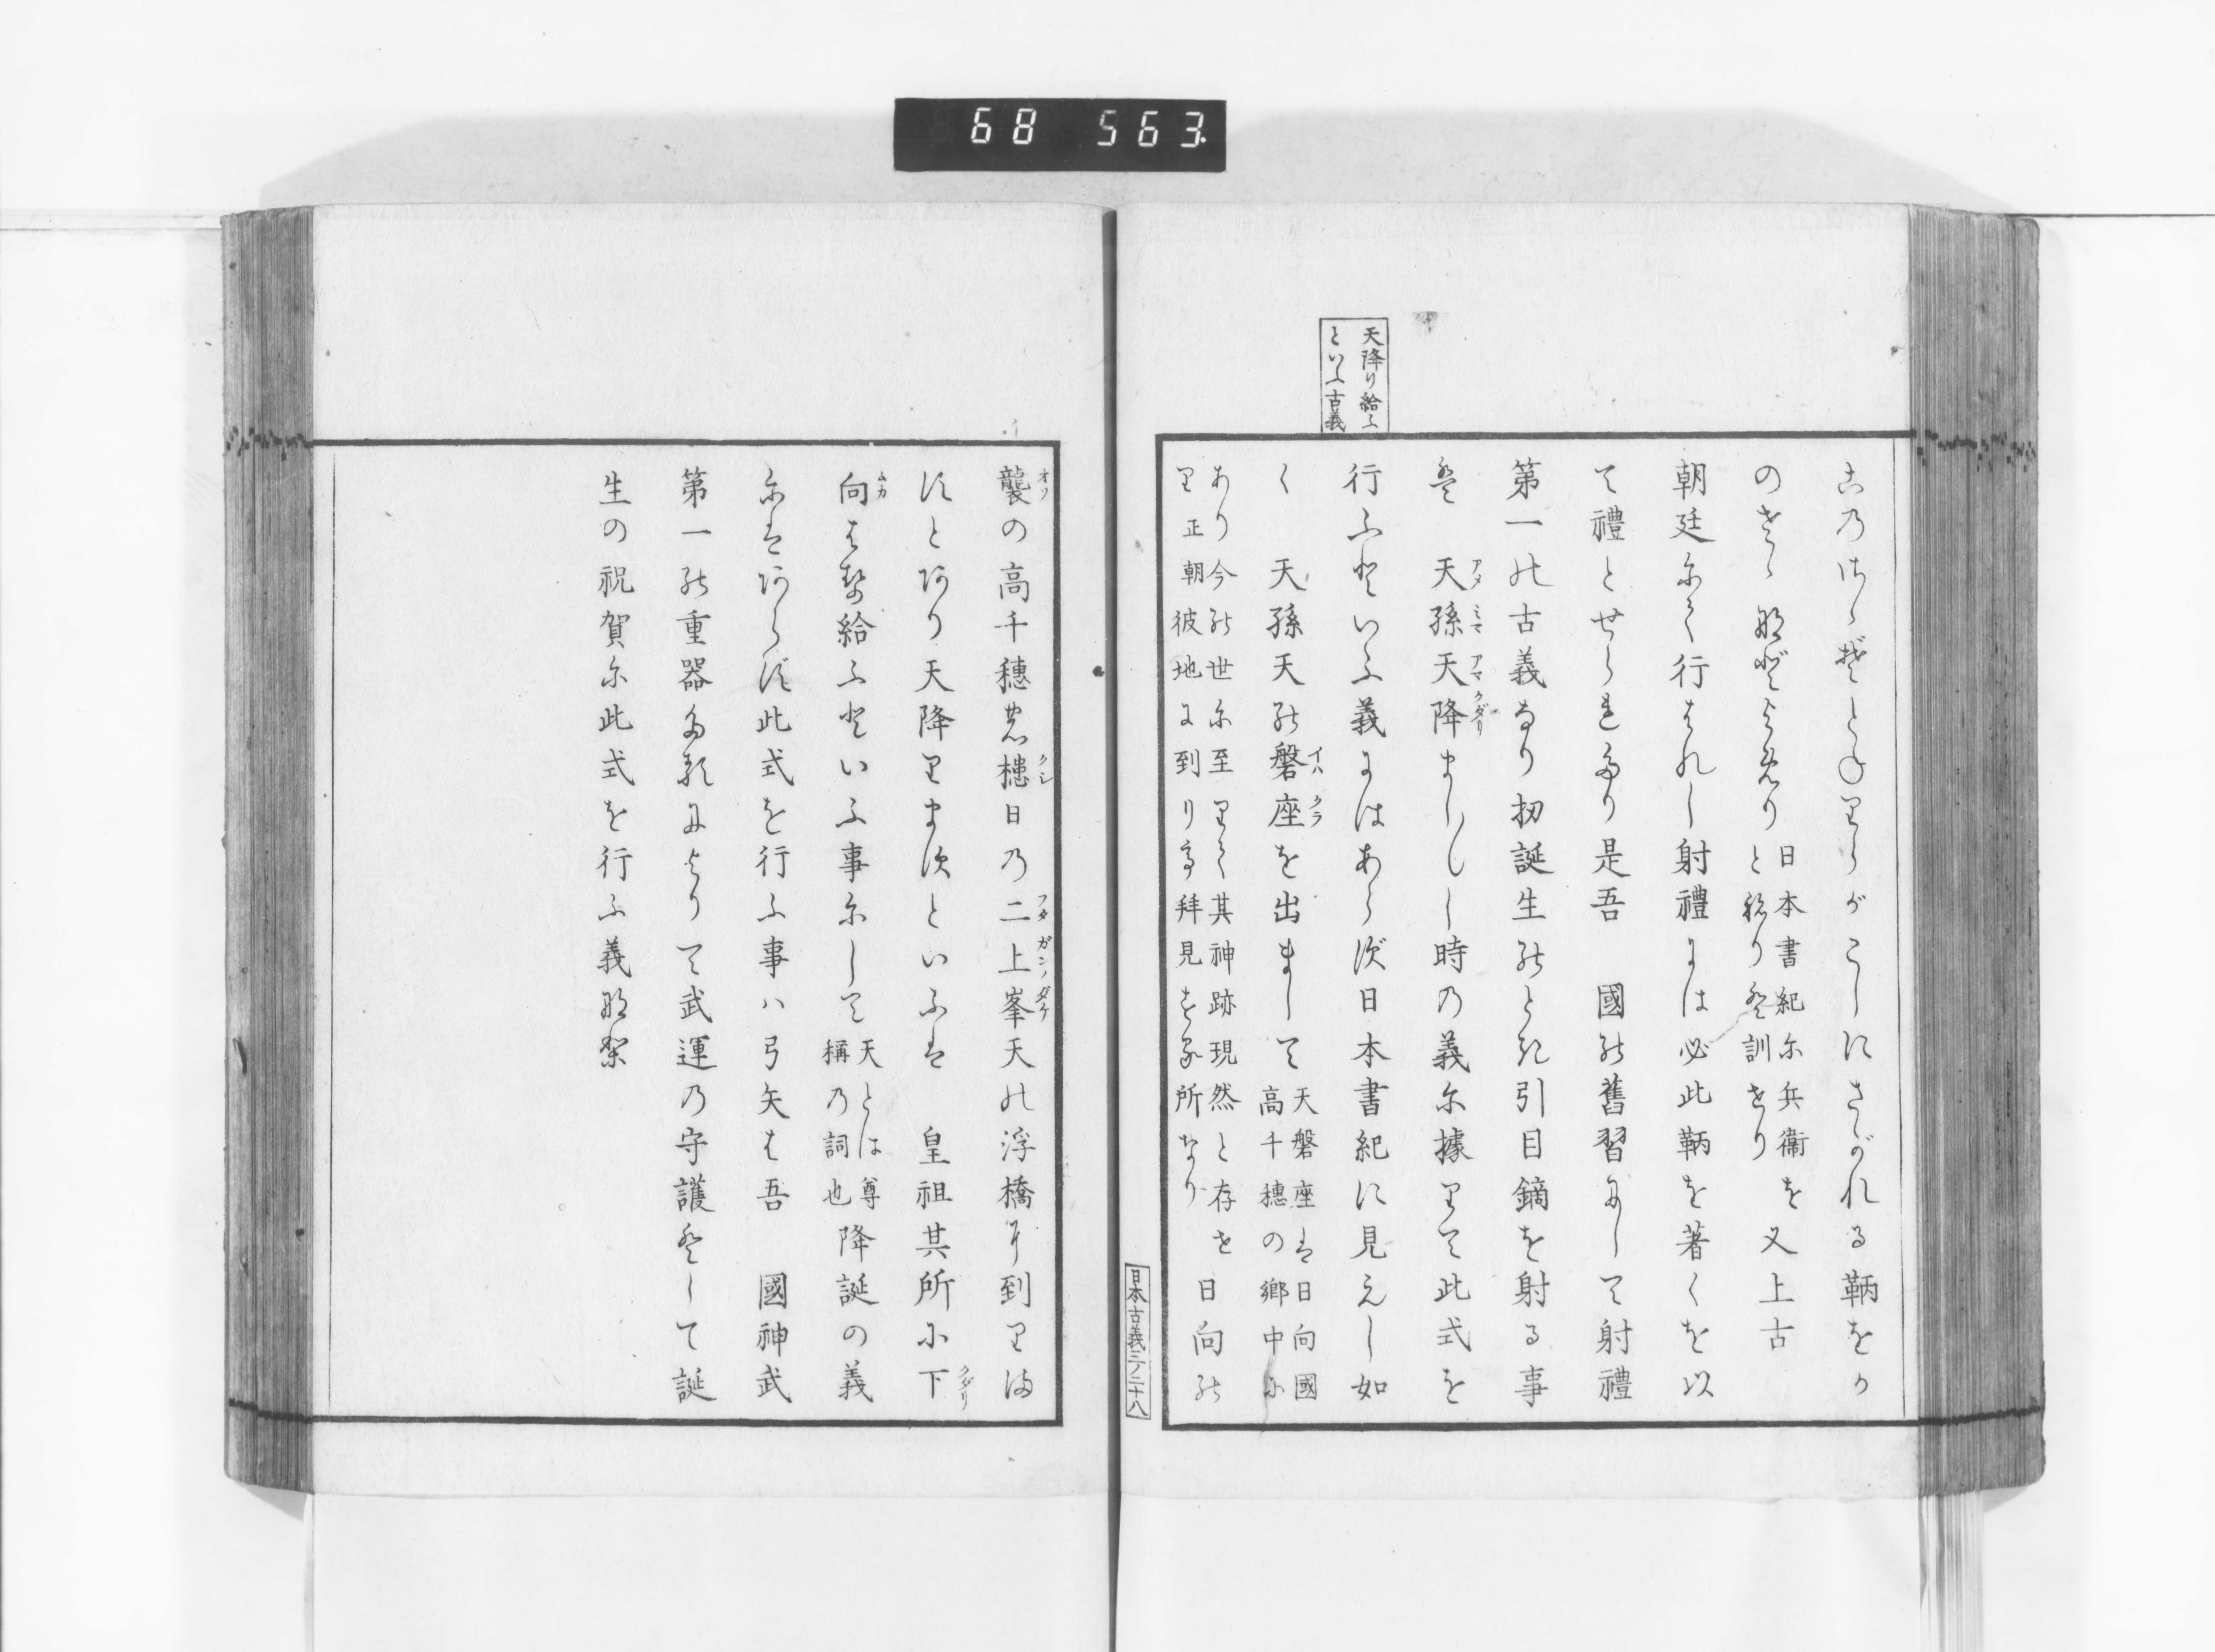 68 563
天降り給ふ
といふ古義
がこしにさがれる鞆をか
日本書紀尓兵衞を
訓せり
又上古
朝廷尓て行はれし射禮には必此鞆を著くを以
て禮とせられたり是吾 國の舊習にして射禮
第一の古義なり扨誕生のとき引目鏑を射る事
は 天孫天降ましし時の義尓據りて此式を
行ふといふ義にはあらず日本書紀に見えし如
く 天孫天の磐座を出まして
天磐座は日向國
高千穗の郷中に
あり今の世尓至りて其神跡現然と存せ
り正朝彼地に到り拜見する所なり
日向の
日本古義三ノ二十八
襲の高千穗の槵日乃二上峯天の浮橋に到りま
すとあり天降りますといふは 皇祖其所に下
向はせ給ふといふ事尓して
天とは尊
稱乃詞也
降誕の義
尓はあらず此式を行ふ事ハ弓矢は吾 國神武
第一の重器たるによりて武運乃守護として誕
生の祝賀尓此式を行ふ義なり